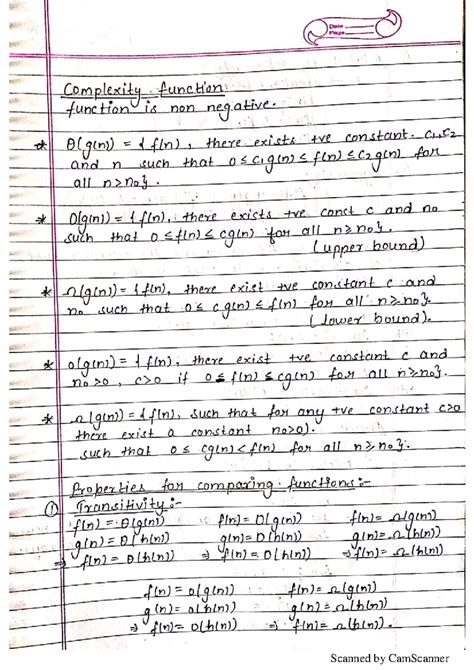 Date
Page
Complexity function
function is non negative.
* Θ(g(n)) = {f(n), there exists +ve constant c1, c2
and n such that 0 ≤ c1g(n) ≤ f(n) ≤ c2g(n) for
all n>n0}.
* O(g(n)) = {f(n), there exists +ve const c and n0
such that 0 ≤ f(n) ≤ cg(n) for all n≥n0}.
(upper bound)
* Ω(g(n)) = {f(n), there exist +ve constant c and
n0 such that 0 ≤ cg(n) ≤ f(n) for all n≥n0}.
(lower bound).
* o(g(n)) = {f(n), there exist +ve constant c and
n0>0, c>0 if 0 ≤ f(n) ≤ cg(n) for all n≥n0}.
* Ω(g(n)) = {f(n), such that for any +ve constant c>0
there exist a constant n0>0).
such that 0 ≤ cg(n) < f(n) for all n≥n0}.
Properties for comparing functions:-
① Transitivity:-
f(n) = Θ(g(n)) f(n) = O(g(n)) f(n) = Ω(g(n))
g(n) = Θ(h(n)) g(n) = O(h(n)) g(n) = Ω(h(n))
⇒ f(n) = Θ(h(n)) ⇒ f(n) = O(h(n)) ⇒ f(n) = Ω(h(n))
f(n) = o(g(n)) f(n) = Ω(g(n))
g(n) = o(h(n)) g(n) = Ω(h(n))
⇒ f(n) = o(h(n)) ⇒ f(n) = Ω(h(n)).
Scanned by CamScanner